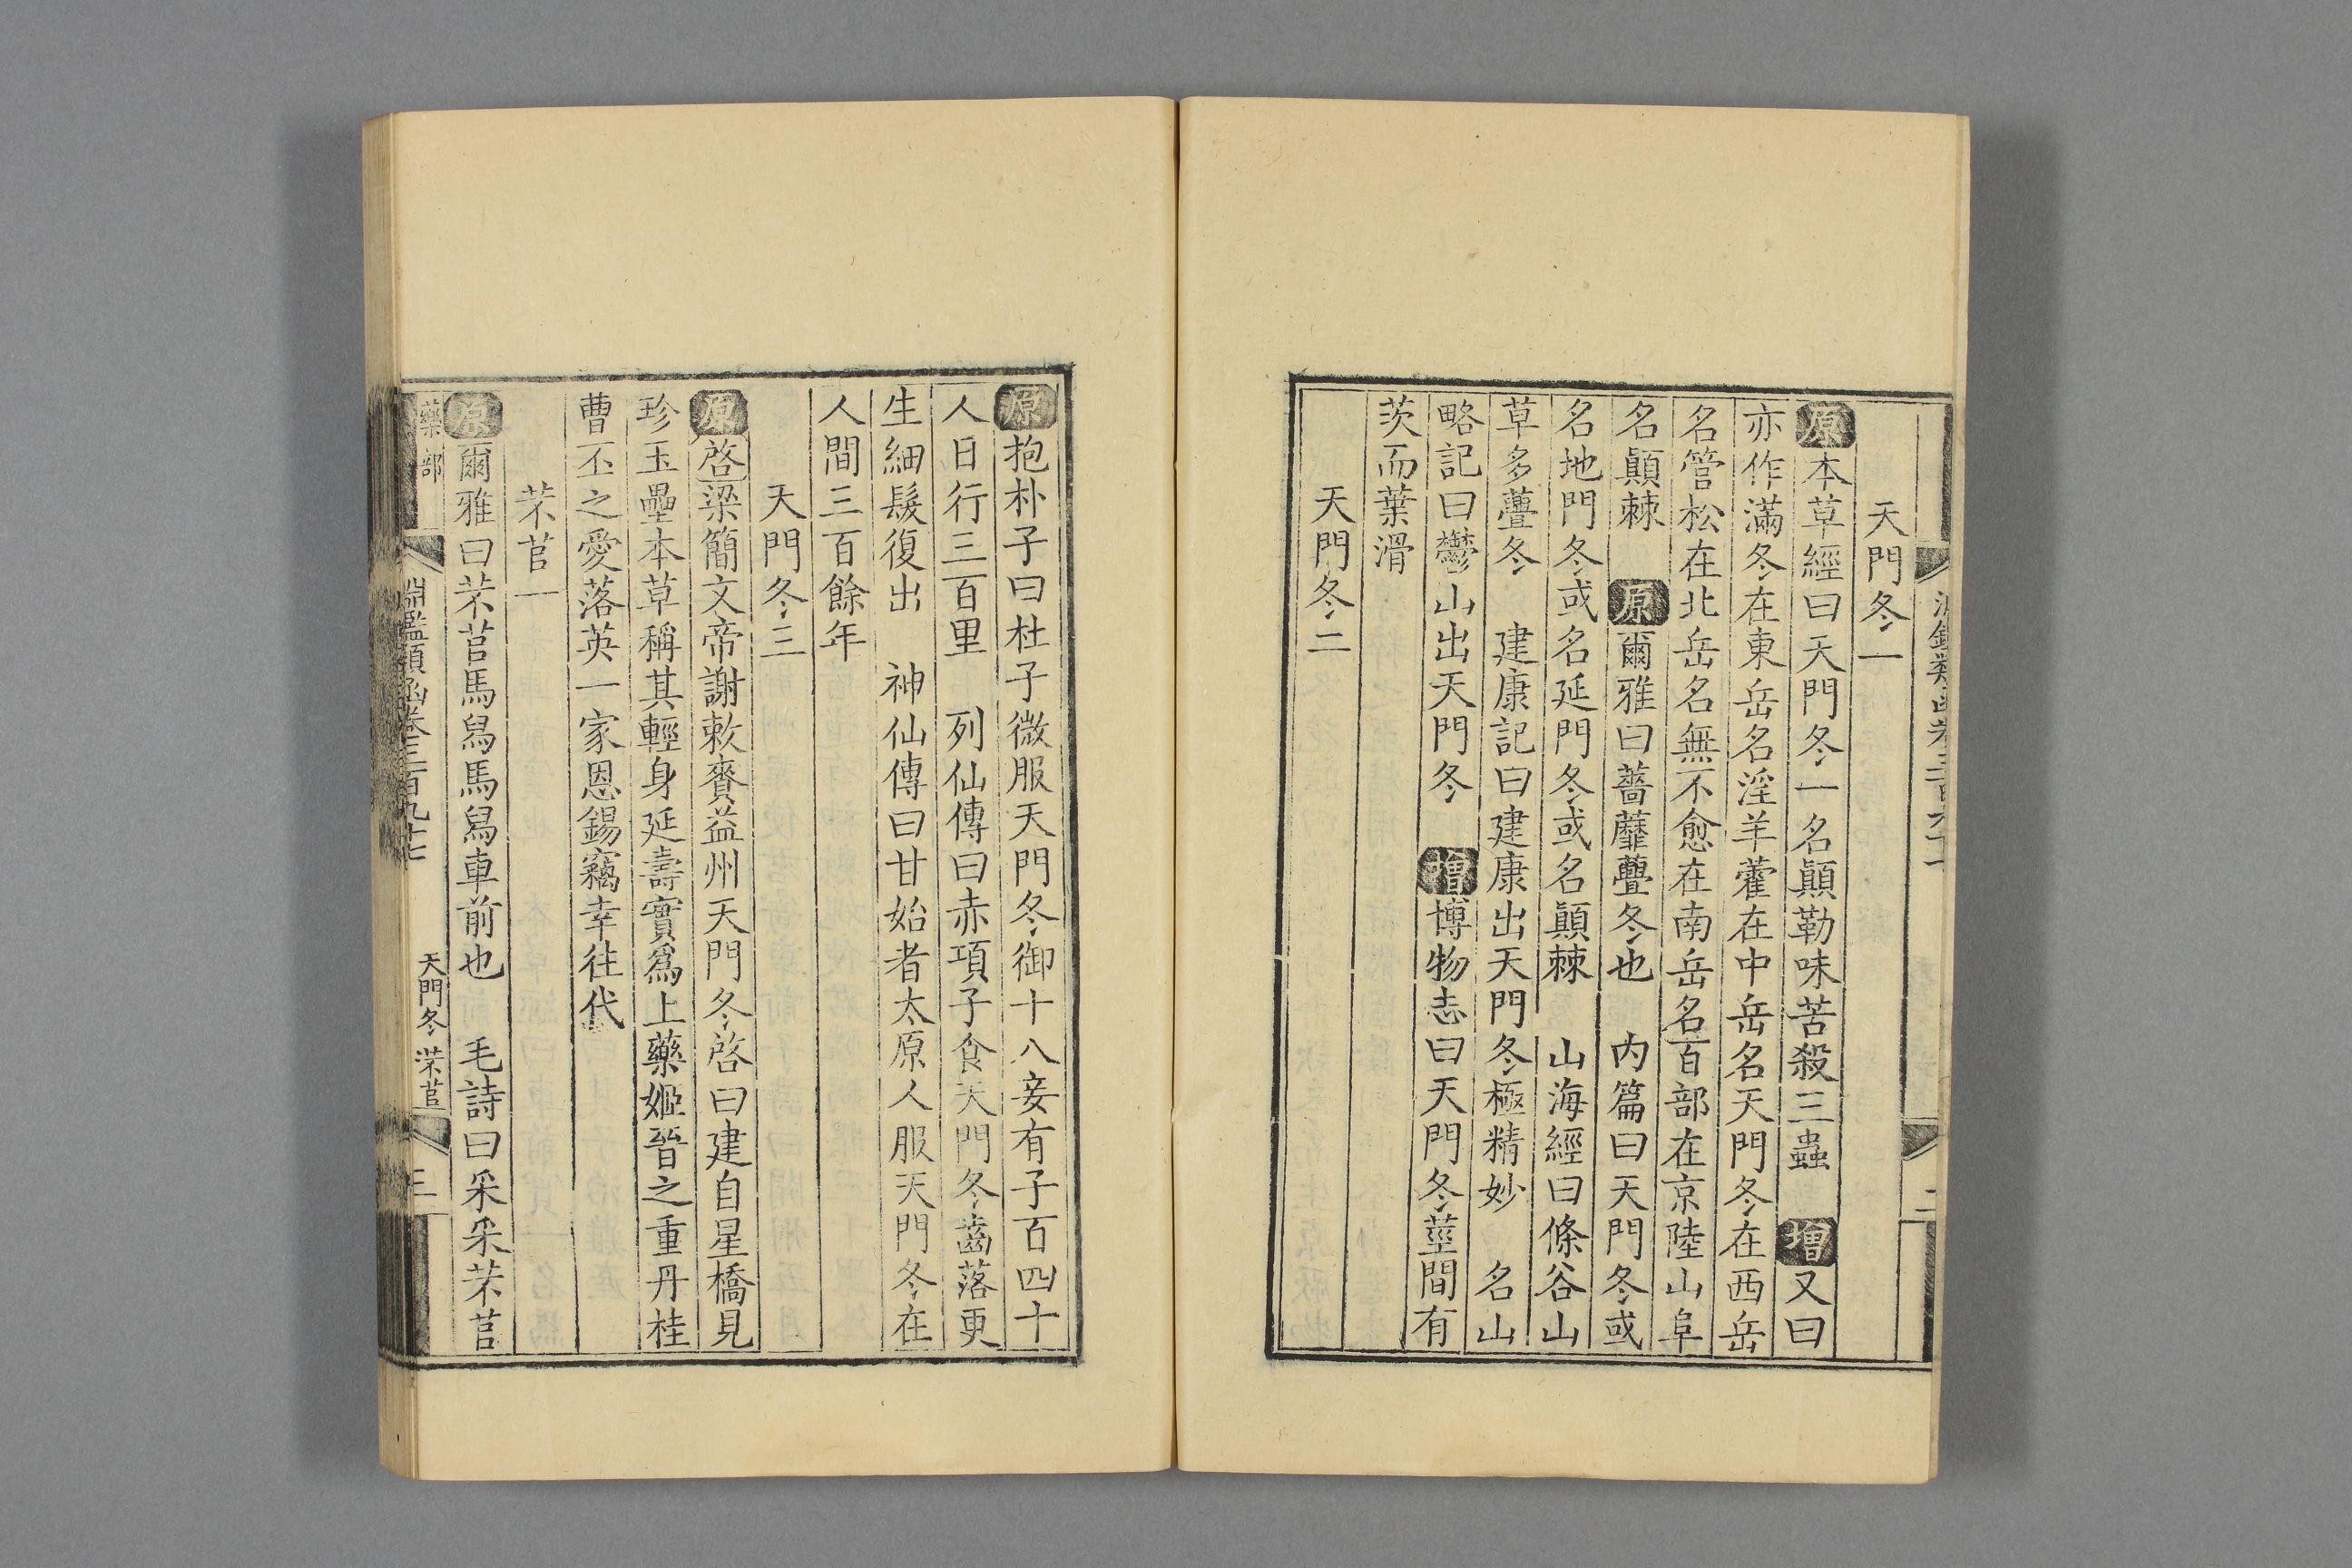 天門冬一
原本草經曰天門冬一名顚勒味苦殺三蟲　增又曰
亦作滿冬在東岳名淫羊藿在中岳名天門冬在西岳
名管松在北岳名無不愈在南岳名百部在京陸山阜
名顚棘　原爾雅曰蔷蘼虋冬也　内篇曰天門冬或
名地門冬或名延門冬或名顚棘　山海經曰條谷山
草多虋冬　建康記曰建康出天門冬極精妙　名山
略記曰鬱山出天門冬　增博物志曰天門冬莖間有
茨而葉滑
天門冬二
原抱朴子曰杜子微服天門冬御十八妾有子百四十
人日行三百里　列仙傳曰赤項子食天門冬齒落更
生細髮復出　神仙傳曰甘始者太原人服天門冬在
人間三百餘年
天門冬三
原啓梁簡文帝謝敕賚益州天門冬啓曰建自星橋見
珍玉壘本草稱其輕身延壽實爲上藥姬晉之重丹桂
曹丕之愛落英一家恩錫竊幸往代
芣苢一
原爾雅曰芣苢馬舄馬舄車前也　毛詩曰采采芣苢
藥部
淵鑑類函卷三百九十七
天門冬　芣苢
三